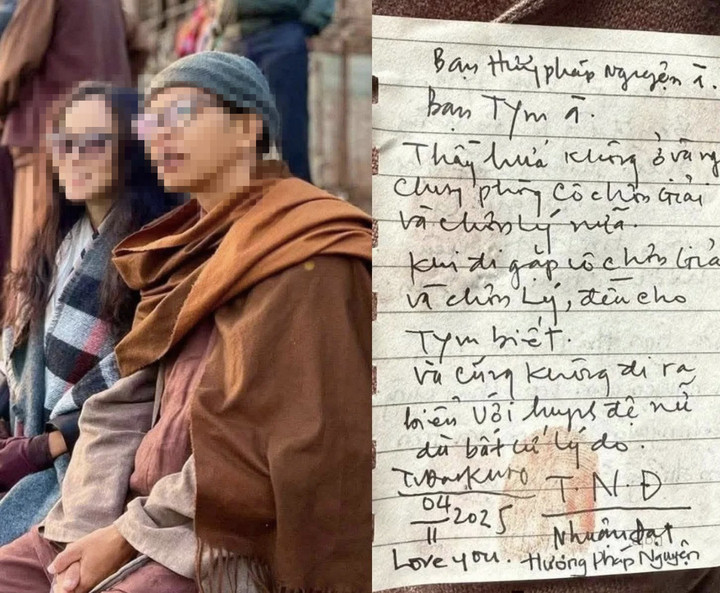 Bạn Hươngpháp Nguyện à.
Bạn Tym à.
Thầy hứa không ở và ng
chung phòng cô chơn Giải
và chơn Lý nữa.
Khi đi gặp cô chơn Giả
và chơn Lý, đều cho
Tym biết.
và cũng không đi ra
biển Với đệ nữ
dù bất cứ lý do.
04
11 2025
T. N. Đ
Nhuận đạt
Love you. Hương Pháp Nguyện